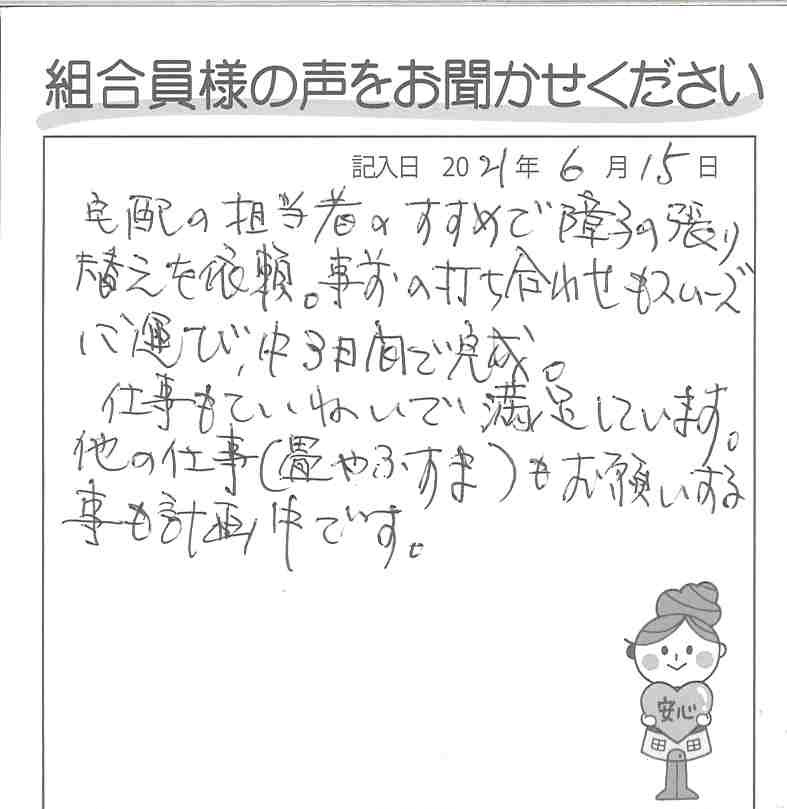 組合員様の声をお聞かせください
記入日 2021年6月15日
宅配の担当者のすすめで障子の張り
替えを依頼。事前の打ち合わせもスムーズ
に運び、中3日間で完成。
仕事もていねいで満足しています。
他の仕事(畳やふすま)もお願いする
事も計画中です。
安心